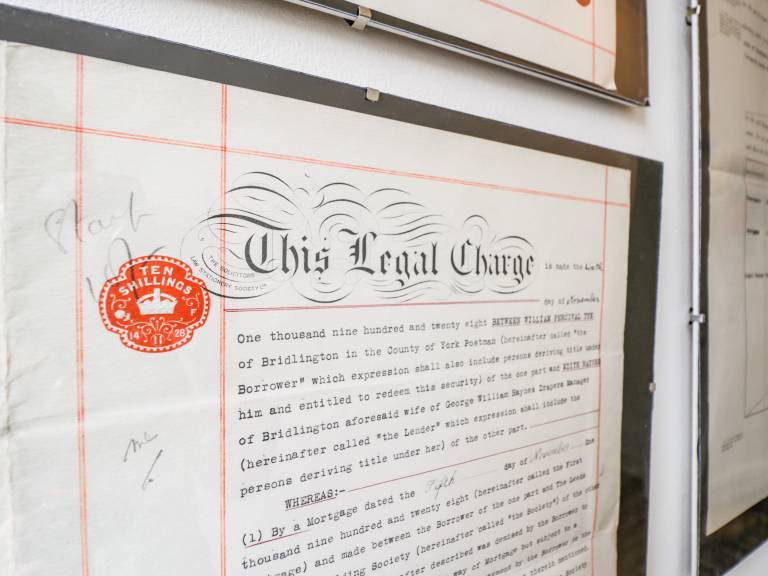 Stamp
TEN
SHILLINGS
14
28
F
THE SOLICITORS
LAW STATIONERY SOCIETY LD
This Legal Charge is made the
day of November
One thousand nine hundred and twenty eight BETWEEN WILLIAM PERCIVAL TYE
of Bridlington in the County of York Postman (hereinafter called "the
Borrower" which expression shall also include persons deriving title under
him and entitled to redeem this security) of the one part and EDITH HAYNES
of Bridlington aforesaid wife of George William Haynes Drapers Manager
(hereinafter called "the Lender" which expression shall include the
persons deriving title under her) of the other part.
WHEREAS:-
(1) By a Mortgage dated the Fifth day of November One
thousand nine hundred and twenty eight (hereinafter called the First
Mortgage) and made between the Borrower of the one part and The Leeds
Building Society (hereinafter called "the Society") of the other
after described was demised by the Borrower to
way of Mortgage but subject to a
payment by the Borrower to the
therein mentioned.
Society